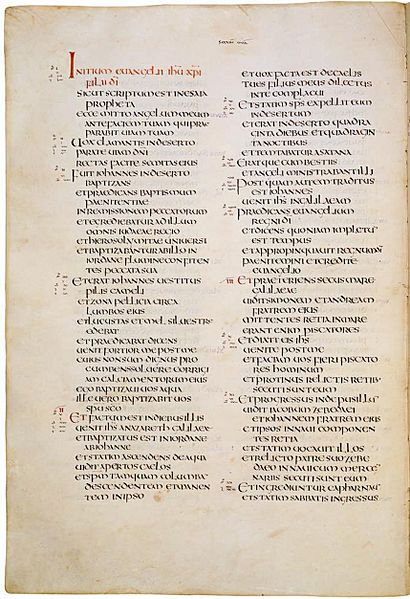 INITIUM EUANGELII IHU XPI
FILII DI
SICUT SCRIPTUM EST IN ESAIA
PROPHETA
ECCE MITTO ANGELUM MEUM
ANTE FACIEM TUAM QUI PRAE
PARABIT UIAM TUAM
UOX CLAMANTIS IN DESERTO
PARATE UIAM DNI
RECTAS FACITE SEMITAS EIUS
FUIT IOHANNES IN DESERTO
BAPTIZANS
ET PRAEDICANS BAPTISMUM
PAENITENTIAE
IN REMISSIONEM PECCATORUM
ET EGREDIEBATUR AD ILLUM
OMNIS IUDAEAE REGIO
ET HIEROSOLYMITAE UNIUERSI
ET BAPTIZABANTUR AB ILLO IN
IORDANE FLUMINE CONFITEN
TES PECCATA SUA
ET ERAT IOHANNES UESTITUS
PILIS CAMELI
ET ZONA PELLICIA CIRCA
LUMBOS EIUS
ET LUCUSTAS ET MEL SILUESTRE
EDEBAT
ET PRAEDICABAT DICENS
UENIT FORTIOR ME POST ME
CUIUS NON SUM DIGNUS PRO
CUMBENS SOLUERE CORRIGI
AM CALCIAMENTORUM EIUS
EGO BAPTIZAUI UOS AQUA
ILLE UERO BAPTIZABIT UOS
SPU SCO
II
ET FACTUM EST IN DIEBUS ILLIS
UENIT IHS A NAZARETH GALILAEAE
ET BAPTIZATUS EST IN IORDANE
AB IOHANNE
ET STATIM ASCENDENS DE AQUA
UIDIT APERTOS CAELOS
ET SPM TAMQUAM COLUMBA
DESCENDENTEM ET MANEN
TEM IN IPSO
ET UOX FACTA EST DE CAELIS
TU ES FILIUS MEUS DILECTUS
IN TE COMPLACUI
ET STATIM SPS EXPELLIT EUM
IN DESERTUM
ET ERAT IN DESERTO QUADRA
GINTA DIEBUS ET QUADRAGIN
TA NOCTIBUS
ET TEMTABATUR A SATANA
ERATQUE CUM BESTIIS
ET ANGELI MINISTRABANT ILLI
POSTQUAM AUTEM TRADITUS
EST IOHANNES
UENIT IHS IN GALILAEAM
PRAEDICANS EUANGELIUM
REGNI DI
ET DICENS QUONIAM IMPLETUM
EST TEMPUS
ET APPROPINQUAUIT REGNUM DI
PAENITEMINI ET CREDITE
EUANGELIO
III
ET PRAETERIENS SECUS MARE
GALILAEAE
UIDIT SIMONEM ET ANDREAM
FRATREM EIUS
MITTENTES RETIA IN MARE
ERANT ENIM PISCATORES
ET DIXIT EIS IHS
UENITE POST ME
ET FACIAM UOS FIERI PISCATO
RES HOMINUM
ET PROTINUS RELICTIS RETIB
SECUTI SUNT EUM
ET PROGRESSUS INDE PUSILLUM
UIDIT IACOBUM ZEBEDAEI
ET IOHANNEM FRATREM EIUS
ET IPSOS IN NAUI COMPONEN
TES RETIA
ET STATIM UOCAUIT ILLOS
ET RELICTO PATRE SUO ZEBE
DAEO IN NAUI CUM MERCEN
NARIIS SECUTI SUNT EUM
ET INGREDIUNTUR CAPHARNAUM
ET STATIM SABBATIS INGRESSUS